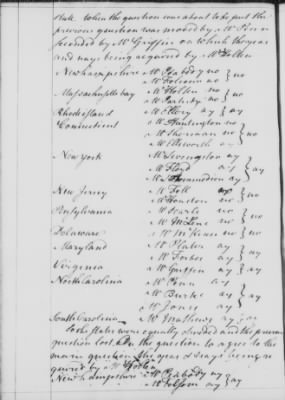 state. When the question was about to be put the
previous question was moved by Mr Penn
seconded by Mr Griffin on which the yeas
and nays being required by Mr Holten
Newhampshire Mr Peabody no } no
Mr Folsom no
Massachusetts bay Mr Holten no } no
Mr Partridge no
Rhodeisland Mr Ellery ay } ay
Connecticut Mr Huntington no } no
Mr Sherman no
Mr Ellsworth ay
New York Mr Livingston ay } ay
Mr Floyd ay
Mr ay
New Jersey Mr Fell } no
Mr Houston no
Pensylvania Mr Searle no } no
Mr McLene no
Delaware Mr McKean no } no
Maryland Mr Plater ay } ay
Mr Forbes ay
Virginia Mr Griffin ay } ay
North Carolina Mr Penn ay } ay
Mr Burke ay
Mr Jones ay
South Carolina Mr Mathews ay } ay
So the states were equally divided and the previous
question lost. On the question to agree to the
main question the yeas & nays being re
quired by Mr Holten
New hampshire Mr Peabody ay } ay
Mr Folsom ay